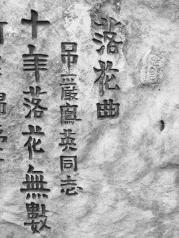 落花曲
吊嚴鳳英同志
十年落花無數